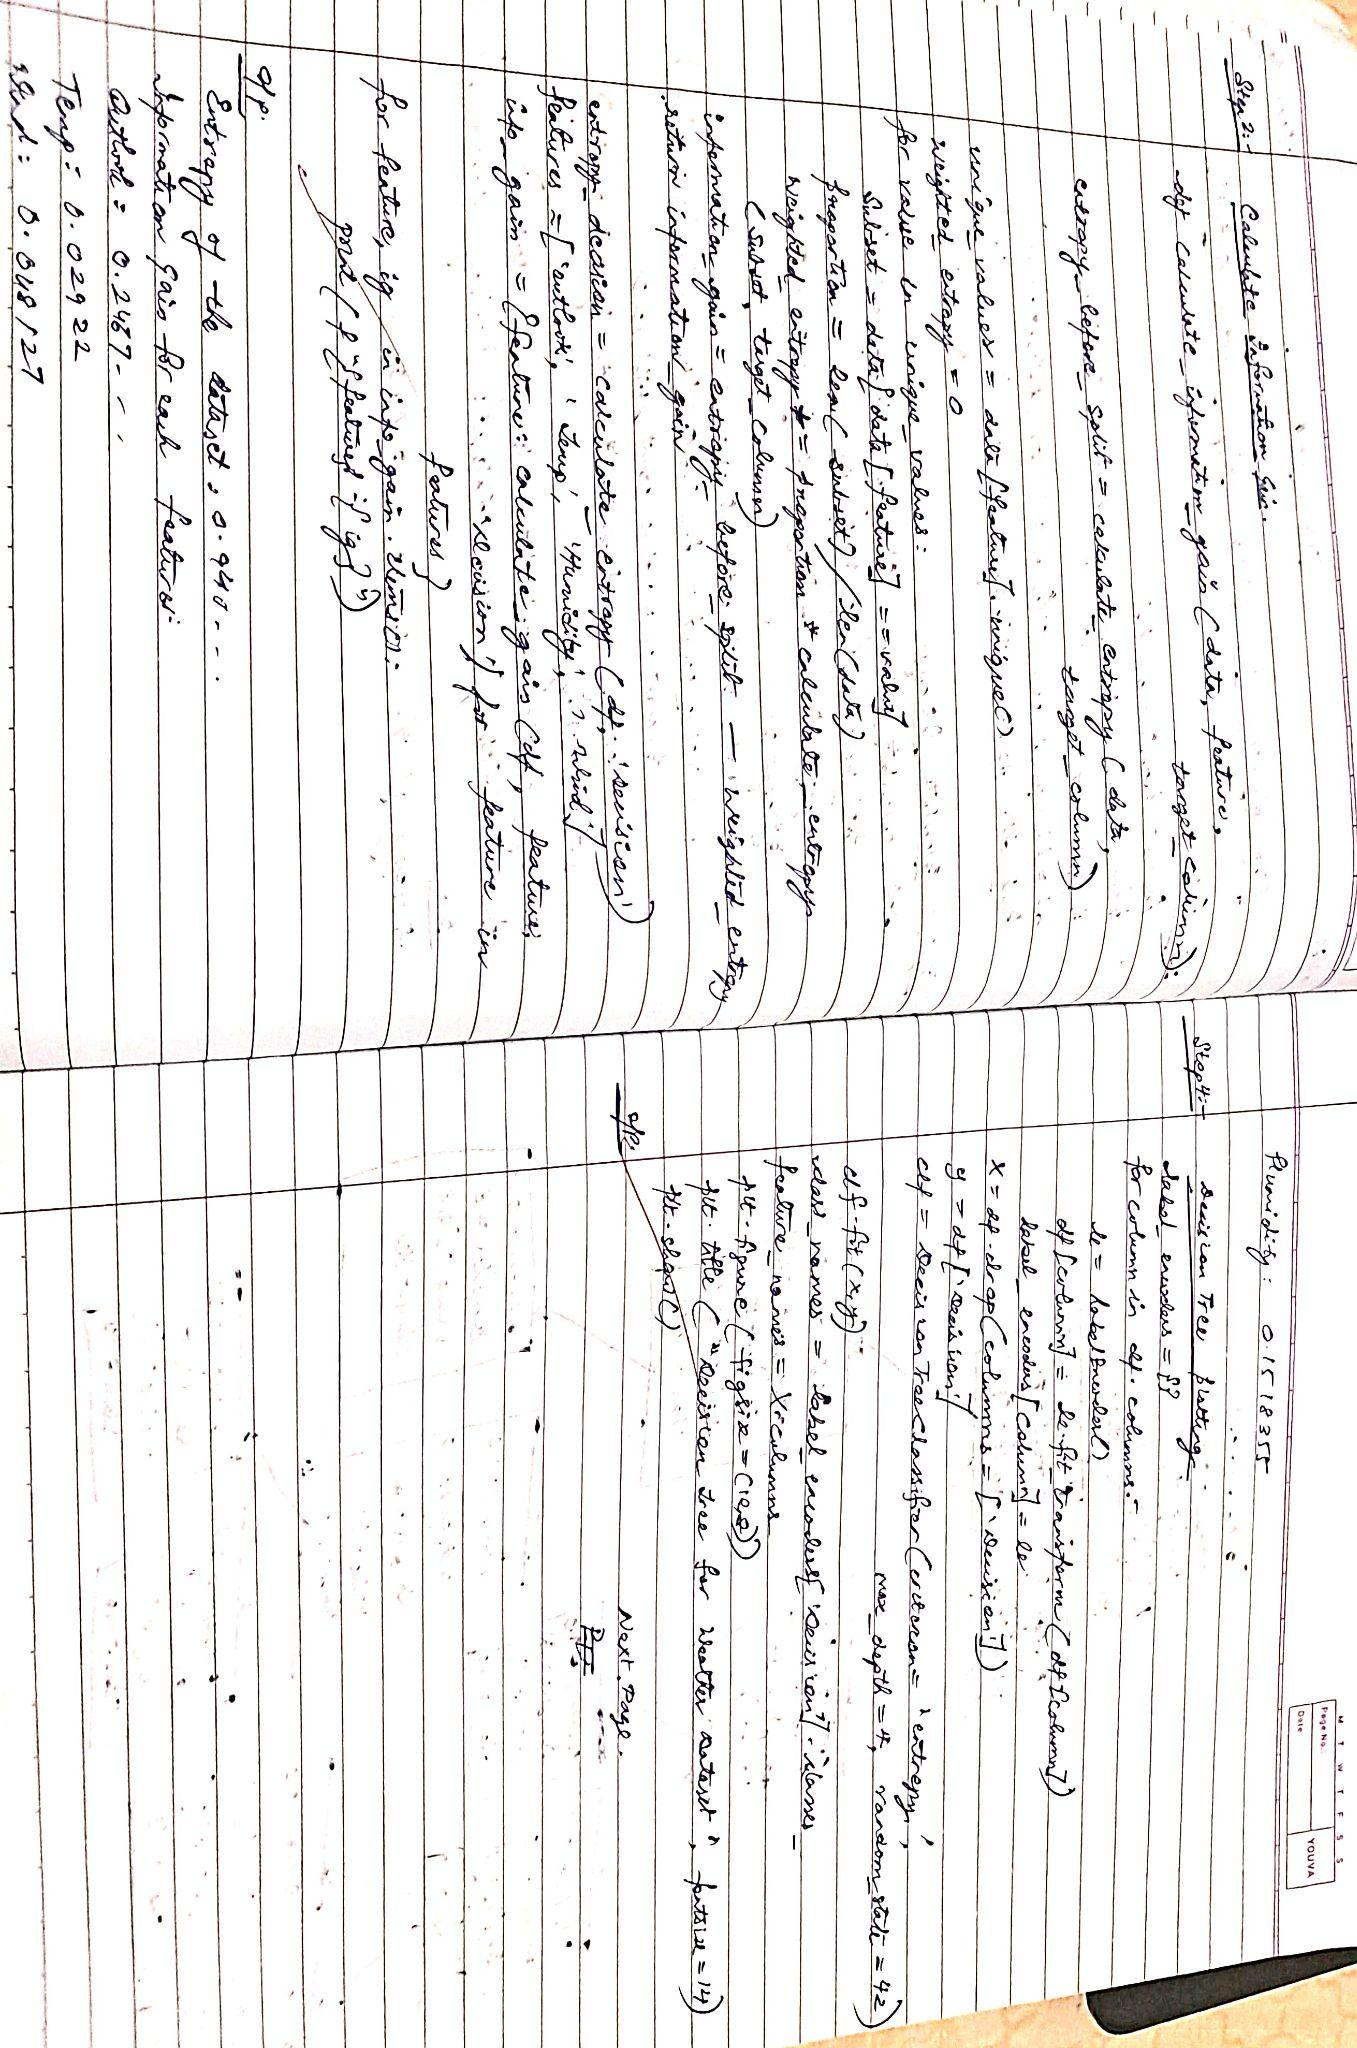 Step 2:- Calculate Information Gain.
def calculate_information_gain (data, feature,
target_column):
entropy_before_split = calculate_entropy (data,
target_column)
unique_values = data[feature].unique()
weighted_entropy = 0
for value in unique_values:
subset = data[data[feature] == value]
proportion = len(subset)/len(data)
weighted_entropy += proportion * calculate_entropy
(subset, target_column)
information_gain = entropy_before_split - weighted_entropy
return information_gain
entropy_decision = calculate_entropy (df, 'Decision')
features = ['outlook', 'Temp', 'Humidity', 'Wind']
info_gain = {feature: calculate_gain (df, feature,
'Decision') for feature in
features}
for feature, ig in info_gain.items():
print (f"{feature}: {ig}")
O/P.
Entropy of the dataset: 0.940...
Information Gain for each feature:
Outlook: 0.2467...
Temp: 0.02922
Wind: 0.048127
M T W T F S S
Page No.:
Date
YOUVA
Humidity: 0.1518355
Step 4:- Decision Tree plotting
label_encoders = {}
for column in df.columns:
le = LabelEncoder()
df[column] = le.fit_transform (df[column])
label_encoders[column] = le
X = df.drop(columns = ['Decision'])
y = df['Decision']
clf = DecisionTreeClassifier (criterion = 'entropy',
max_depth = 4, random_state = 42)
clf.fit(x,y)
class_names = label_encoders['Decision'].classes_
feature_names = X.columns
plt.figure(figsize = (12,8))
plt.title ("Decision tree for Weather Dataset", fontsize = 14)
plt.show()
O/P:
Next Page.